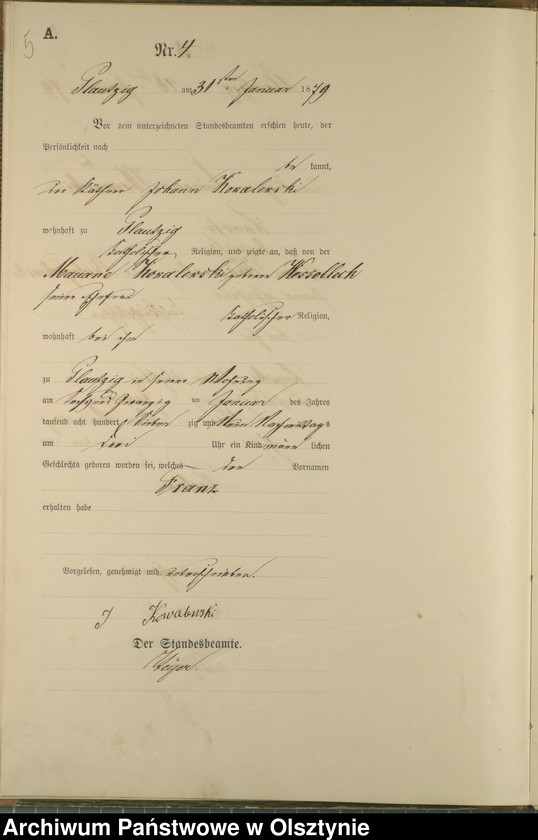 5
A.
Nr. 4.
Plautzig am 31sten Januar 1879
Vor dem unterzeichneten Standesbeamten erschien heute, der
Persönlichkeit nach
be kannt,
der Käthner Johann Kowalewski
wohnhaft zu Plautzig
katholischer Religion, und zeigte an, daß von der
Kowalewski geborene
seine Ehefrau
katholischer Religion,
wohnhaft bei ihm
zu Plautzig in seiner Wohnung
am sechsundzwanzig ten Januar des Jahres
tausend acht hundert sieben zig und neun Nachmittags
um drei Uhr ein Kind männ lichen
Geschlechts geboren worden sei, welches den Vornamen
Franz
erhalten habe
Vorgelesen, genehmigt und unterschrieben.
J Kowalewski
Der Standesbeamte.
Archiwum Państwowe w Olsztynie